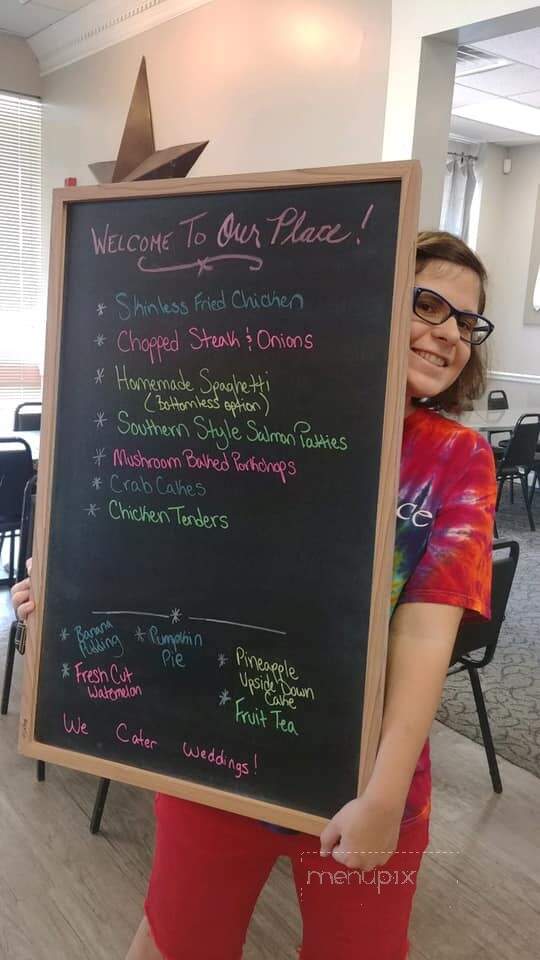 WELCOME TO Our Place!
* Skinless Fried Chicken
* Chopped Steak & Onions
* Homemade Spaghetti
(Bottomless option)
* Southern Style Salmon Patties
* Mushroom Baked Porkchops
* Crab Cakes
* Chicken Tenders
* Banana Pudding
* Pumpkin Pie
* Fresh Cut Watermelon
* Pineapple Upside Down Cake
* Fruit Tea
We Cater Weddings!
ce
menupix